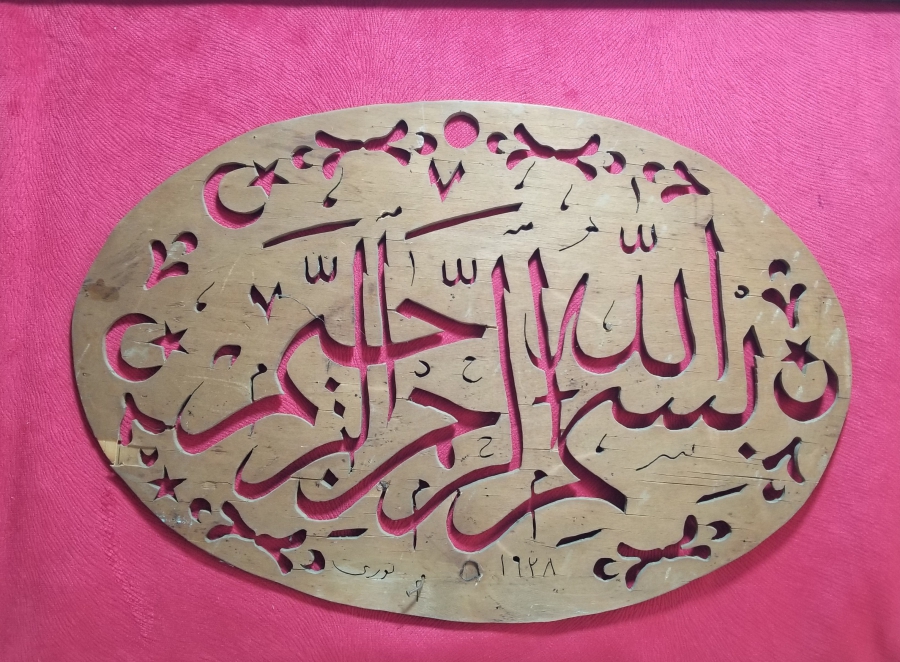 بسم الله الرحمن الرحيم
نوری
١٩٢٨